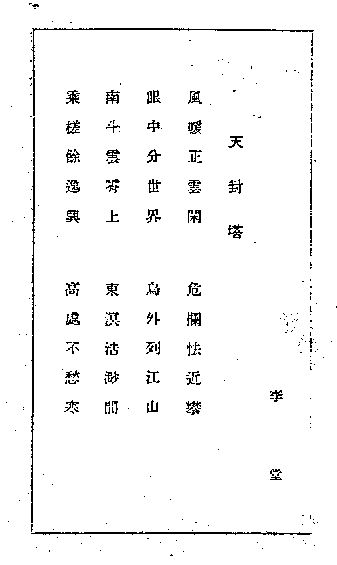 李堂
天封塔
風暖正雲閑 危欄怯近攀
眼中分世界 鳥外列江山
南斗雲霄上 東溟浩渺間
乘槎餘逸興 高處不愁